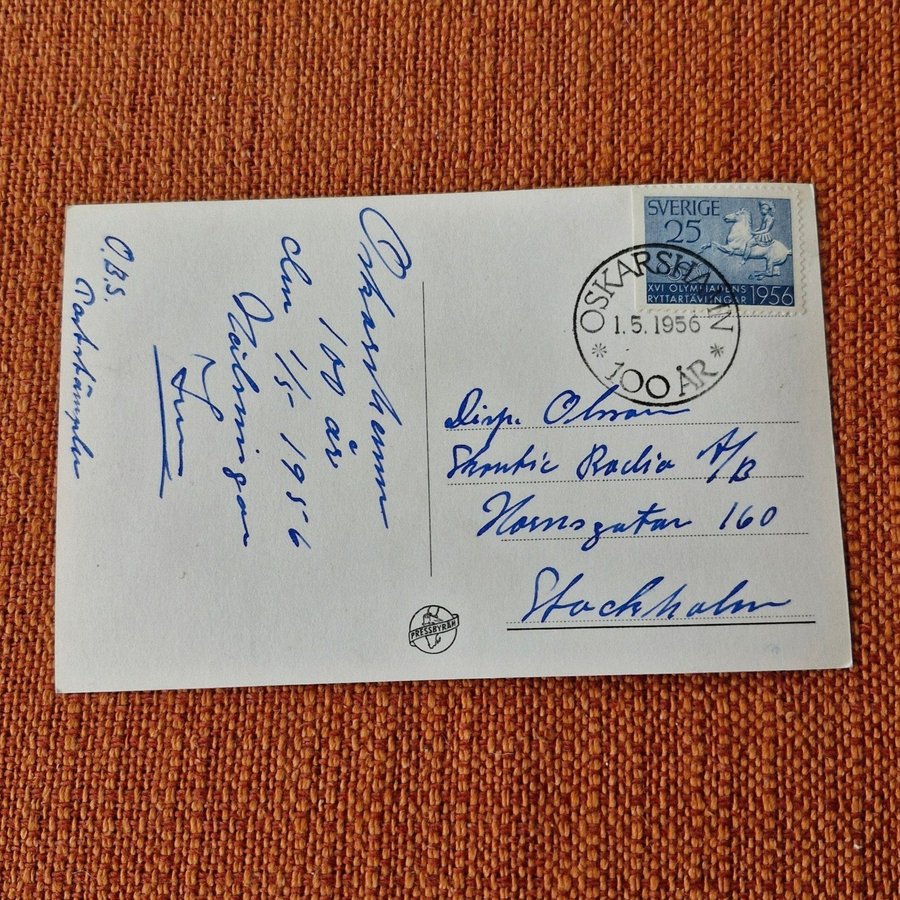 Oskarshamn
100 år
den 1/5 1956
Hälningar
O.B.S.
Poststämpeln
SVERIGE
25
XVI OLYMPIADENS
RYTTARTÄVLINGAR 1956
OSKARSHAMN
1.5.1956
* 100 ÅR *
Disp. Olsson
Skantic Radio A/B
Hornsgatan 160
Stockholm
PRESSBYRÅN